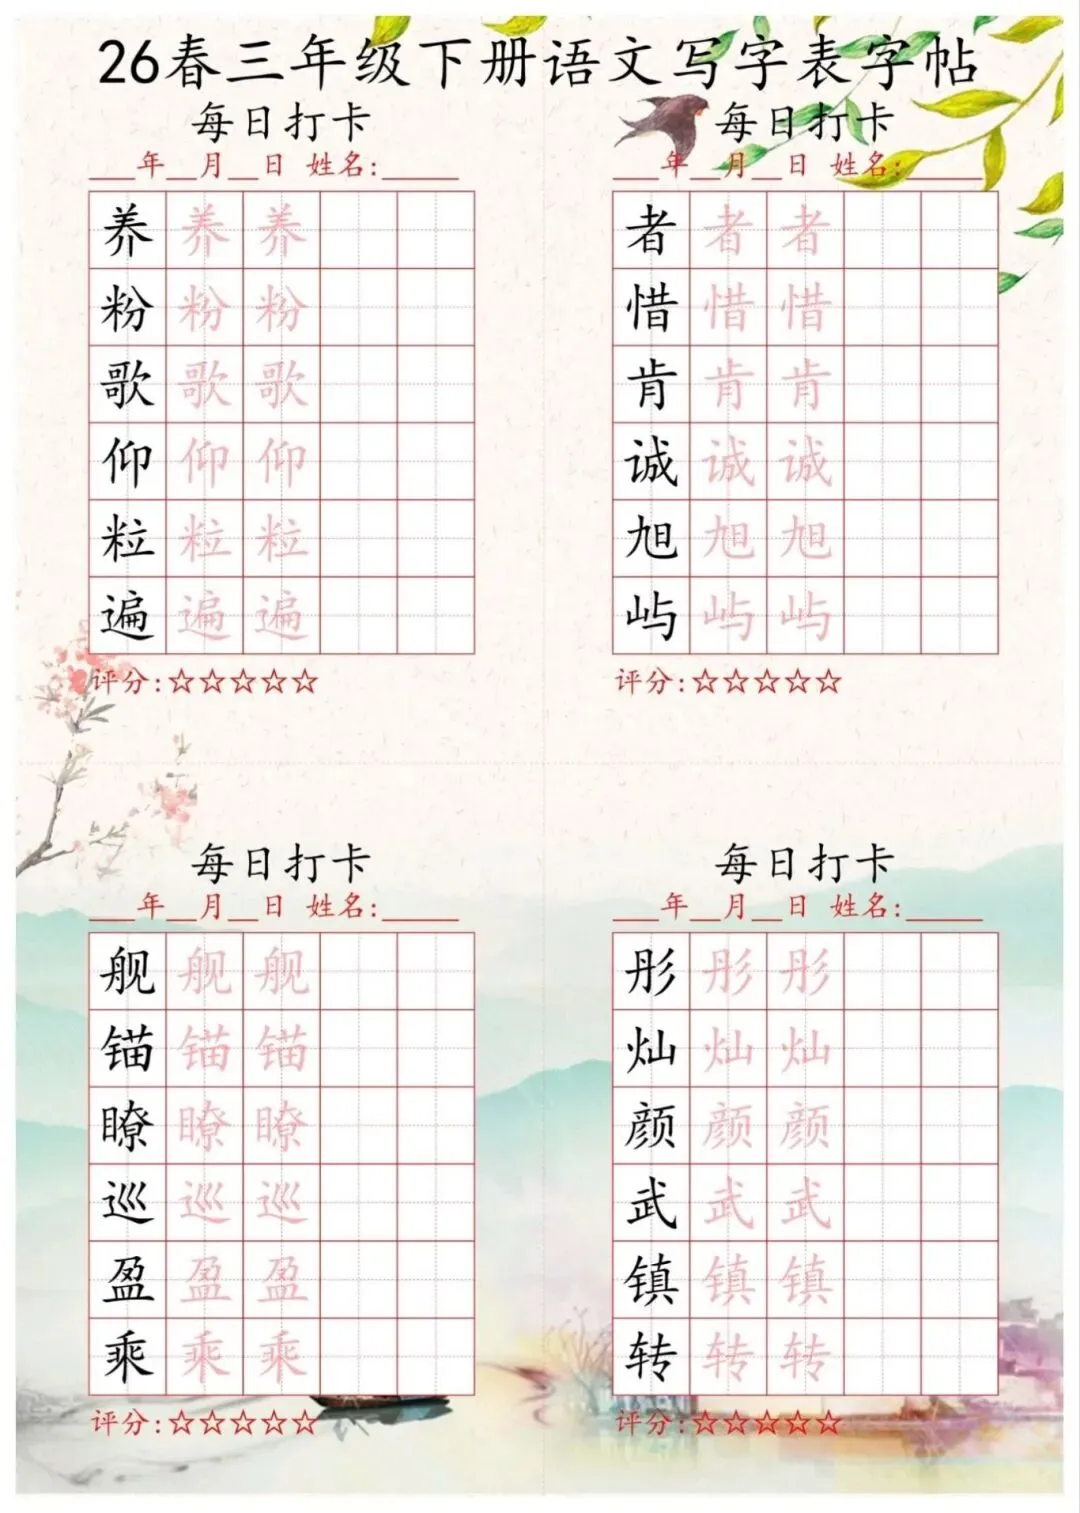 26春三年级下册语文写字表字帖
每日打卡
___年__月__日 姓名:_____
养养养
粉粉粉
歌歌歌
仰仰仰
粒粒粒
遍遍遍
评分:☆☆☆☆☆
每日打卡
___年__月__日 姓名:_____
者者者
惜惜惜
肯肯肯
诚诚诚
旭旭旭
屿屿屿
评分:☆☆☆☆☆
每日打卡
___年__月__日 姓名:_____
舰舰舰
锚锚锚
瞭瞭瞭
巡巡巡
盈盈盈
乘乘乘
评分:☆☆☆☆☆
每日打卡
___年__月__日 姓名:_____
彤彤彤
灿灿灿
颜颜颜
武武武
镇镇镇
转转转
评分:☆☆☆☆☆